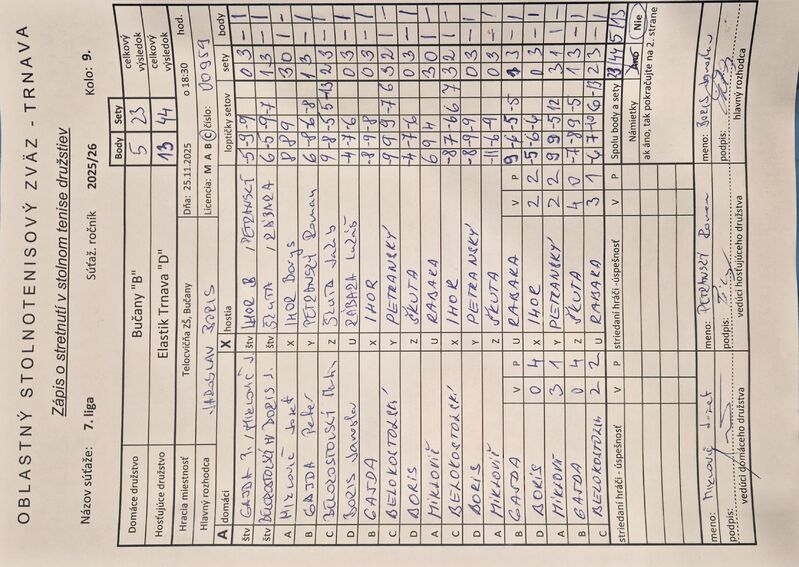 OBLASTNÝ STOLNOTENISOVÝ ZVÄZ - TRNAVA
Zápis o stretnutí v stolnom tenise družstiev
Názov súťaže: 7. liga Súťaž. ročník 2025/26 Kolo: 9.
Domáce družstvo Bučany "B" Body 5 Sety 23 celkový výsledok
Hosťujúce družstvo Elastik Trnava "D" 13 44 celkový výsledok
Hracia miestnosť Telocvičňa ZŠ, Bučany Dňa: 25.11.2025 o 18:30 hod.
Hlavný rozhodca JAROSLAV BORIS Licencia: M A B C číslo: 00959
A domáci X hostia loptičky setov sety body
štv GAJDA P. / MIKLOVIČ J. štv IHOR B / PETRANSKÝ 5 -5 -9 0 3 - 1
štv BORIS J. štv ŠKUTA / RÁBARA 6 -5 -9 -7 1 3 - 1
A X IHOR Borys 8 8 9 3 0 1 -
B GAJDA Peter Y PETRANSKÝ Roman 6 -8 -6 -8 1 3 - 1
C Z 2 3 - 1
D BORIS Jaroslav U RÁBARA Lukáš -4 -7 -6 0 3 - 1
B GAJDA X IHOR -8 -9 -8 0 3 - 1
C BELOKOSTOLSKÝ Y PETRANSKÝ 3 2
D BORIS Z ŠKUTA -4 -7 -6 0 3 - 1
A MIKLOVIČ U RABARA 6 9 4 3 0 1 -
C BELOKOSTOLSKÝ X IHOR -8 7 -6 6 7 3 2 1 -
D BORIS Y PETRANSKÝ -8 -9 -9 0 3 - 1
A MIKLOVIČ Z ŠKUTA -11 -6 -9 0 3 - 1
B GAJDA V P U RABAKA V P 9 -6 -5 -5 1 3 - 1
D BORIS 0 4 X IHOR 2 2 -5 -6 -4 0 3 - 1
A MIKLOVIČ 3 1 Y PETRANSKÝ 2 2 9 9 -5 12 3 1 1 -
B GAJDA 0 4 Z ŠKUTA 4 0 -7 -8 9 -5 1 3 - 1
C 2 2 U RABAKA 3 1 2 3 - 1
striedaní hráči - úspešnosť V P striedaní hráči -úspešnosť V P Spolu body a sety 23 44 5 13
Námietky Áno Nie
ak áno, tak pokračujte na 2. strane
meno: meno: PETRANSKÝ Roman meno: BORIS Jaroslav
podpis: podpis: podpis:
vedúci domáceho družstva vedúci hosťujúceho družstva hlavný rozhodca